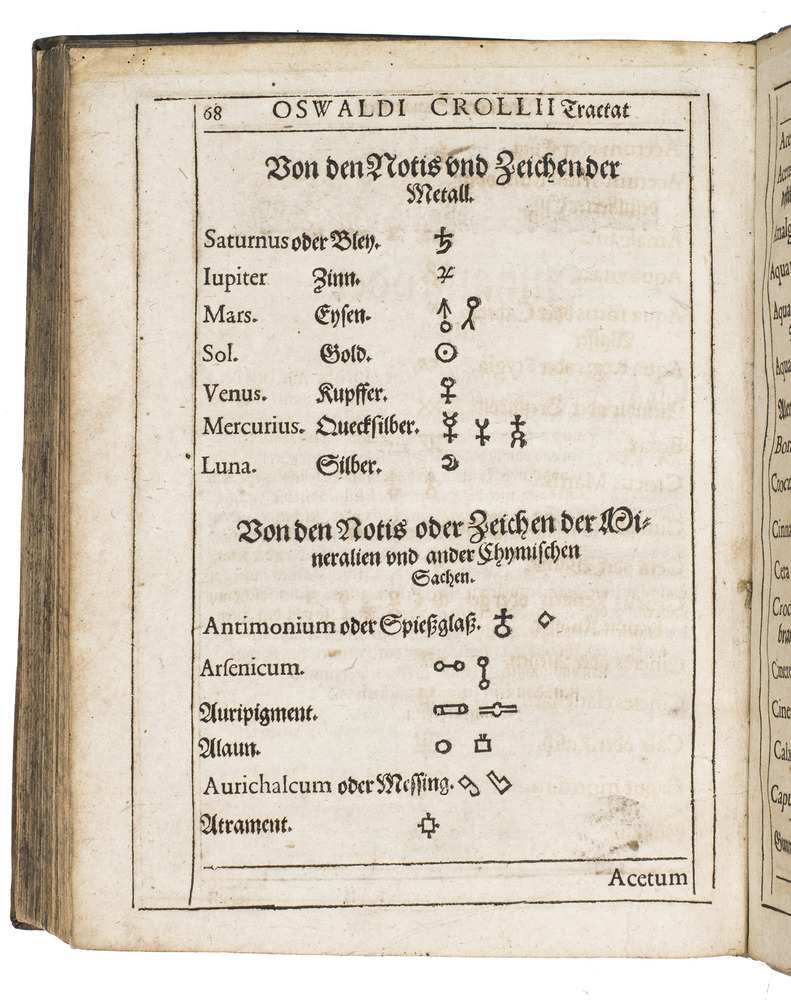 68 OSWALDI CROLLII Tractat
Von den Notis vnd Zeichen der
Metall.
Saturnus oder Bley. ♄
Iupiter Zinn. ♃
Mars. Eysen.
Sol. Gold. ☉
Venus. Kupffer. ♀
Mercurius. Quecksilber. ☿
Luna. Silber. ☽
Von den Notis oder Zeichen der Mi⸗
neralien vnd ander Chymischen
Sachen.
Antimonium oder Spießglaß. ♁
Arsenicum.
Auripigment.
Alaun.
Aurichalcum oder Messing.
Atrament.
Acetum
Aqua
Aqua